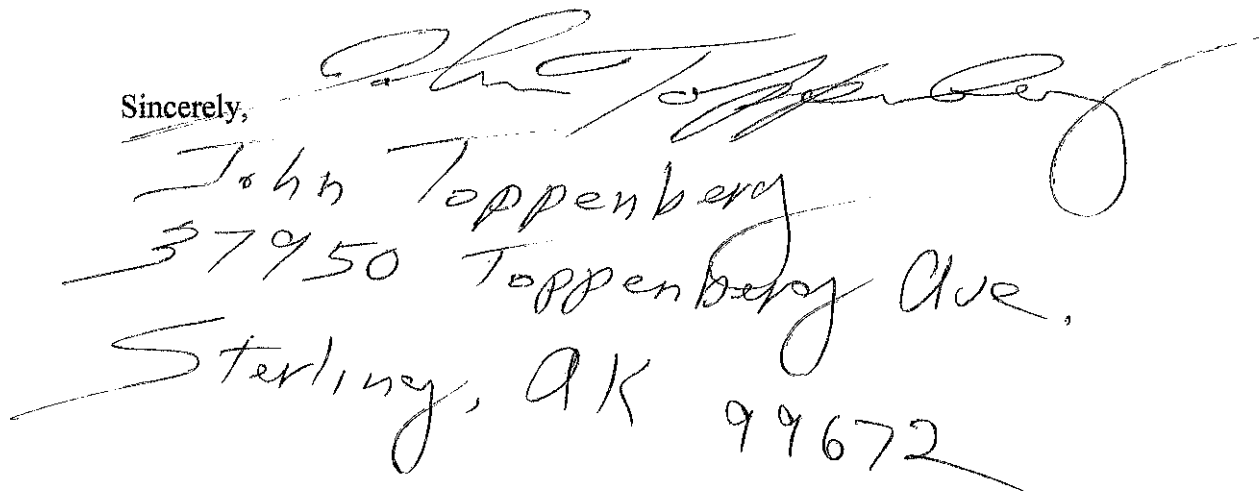 Sincerely,
John Toppenberg
John Toppenberg
37950 Toppenberg Ave.
Sterling, AK 99672